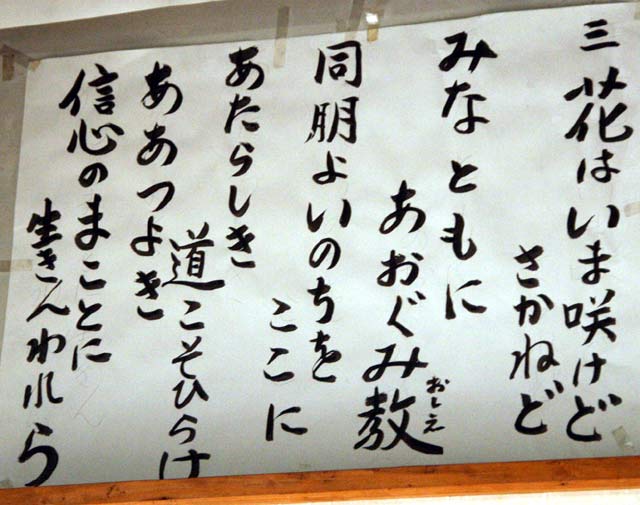 三 花はいま咲けど
さかねど
みなともに
あおぐみ教
おしえ
同朋よいのちを
ここに
あたらしき
道こそひらけ
ああつよき
信心のまことに
生きんわれら